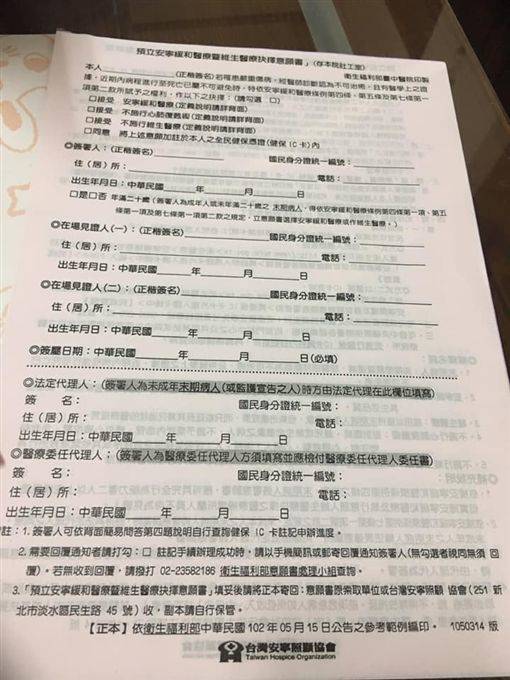 預立安寧緩和醫療暨維生醫療抉擇意願書」(存本院社工室)
衛生福利部臺中醫院印製
本人____________(正楷簽名)若罹患嚴重傷病,經醫師診斷認為不可治癒,且有醫學上之證
據,近期內病程進行至死亡已屬不可避免時,特依安寧緩和醫療條例第四條、第五條及七條第一
項第二款所賦予之權利,作以下之抉擇:(請勾選 □)
□接受 安寧緩和醫療(定義說明請詳背面)
□接受 不施行心肺復甦術(定義說明請詳背面)
□接受 不施行維生醫療(定義說明請詳背面)
□同意 將上述意願加註於本人之全民健保憑證(健保IC卡)內
◎簽署人:(正楷簽名)____________ 國民身分證統一編號:____________
住(居)所:____________ 電話:____________
出生年月日:中華民國______年______月______日
□是□否 年滿二十歲(簽署人為成年人或未年滿二十歲之末期病人,得依安寧緩和醫療條例第四條第一項、第五
條第一項及第七條第一項第二款之規定,立意願書選擇安寧緩和醫療或作維生醫療。)
◎在場見證人(一):(正楷簽名)____________國民身分證統一編號:____________
住(居)所:____________ 電話:____________
出生年月日:中華民國______年______月______日
◎在場見證人(二):(正楷簽名)____________國民身分證統一編號:____________
住(居)所:____________ 電話:____________
出生年月日:中華民國______年______月______日
◎簽署日期:中華民國______年______月______日(必填)
◎法定代理人:(簽署人為未成年末期病人(或監護宣告之人)時方由法定代理在此欄位填寫)
簽 名: 國民身分證統一編號:
住(居)所: 電話:
出生年月日:中華民國______年______月______日
◎醫療委任代理人:(簽署人為醫療委任代理人方須填寫並應檢付醫療委任代理人委任書)
簽 名: 國民身分證統一編號:
住(居)所: 電話:
出生年月日:中華民國______年______月______日
註:1.簽署人可依背面簡易問答第四題說明自行查詢健保IC卡註記申辦進度。
2.需要回覆通知者請打勾:□ 註記手續辦理成功時,請以手機簡訊或郵寄回覆通知簽署人(無勾選者視同無須 回
覆)。若無收到回覆,請撥打 02-23582186 衛生福利部意願書處理小組查詢。
3.「預立安寧緩和醫療暨維生醫療抉擇意願書」填妥後請將正本寄回:意願書原索取單位或台灣安寧照顧 協會(251 新
北市淡水區民生路 45 號)收,副本請自行保管。
【正本】依衛生福利部中華民國 102 年 05 月 15 日公告之參考範例編印。 1050314 版
台灣安寧照顧協會
Taiwan Hospice Organization